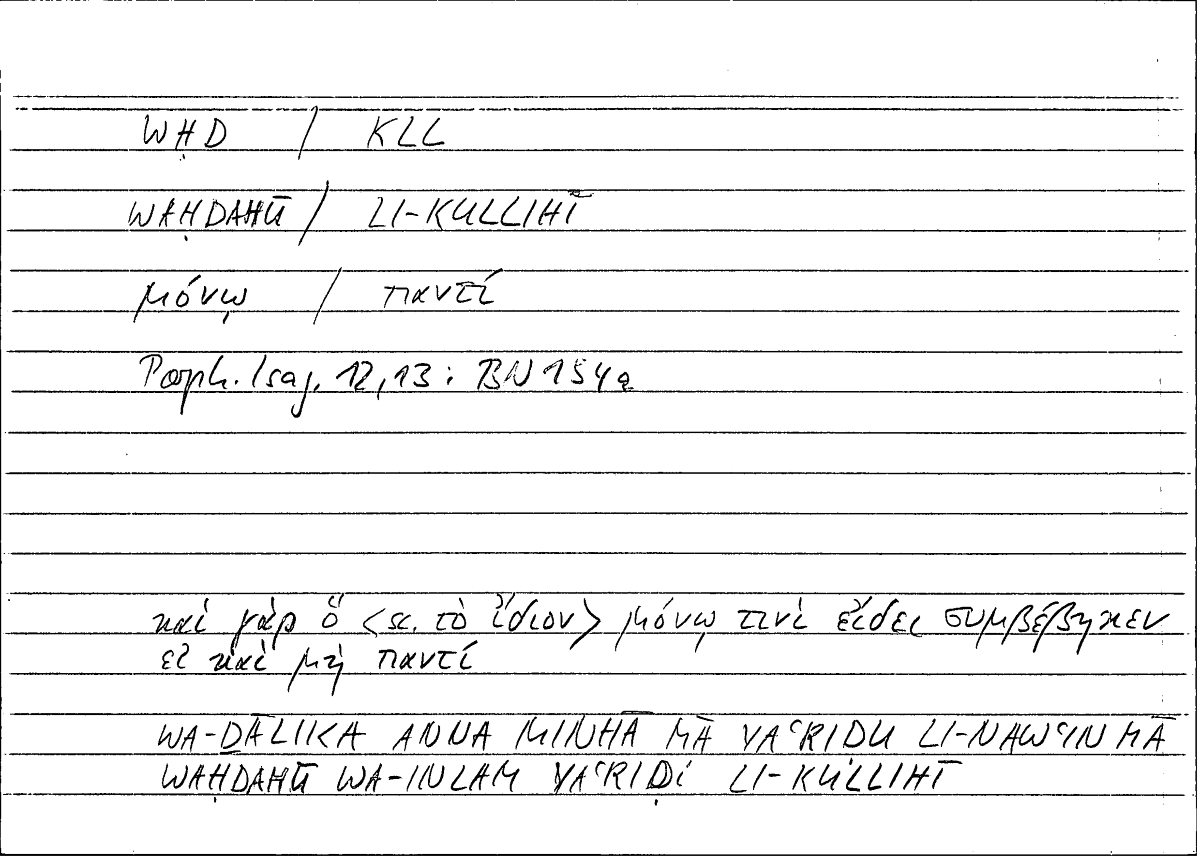 WḤD / KLL
WAḤDAHŪ / LI-KULLIHĪ
μόνῳ / παντί
Porph. Isag. 12,13 : BN 154a
καὶ γὰρ ὃ <sc. τὸ ἴδιον> μόνῳ τινὶ εἴδει συμβέβηκεν
εἰ καὶ μὴ παντί
WA-ḎĀLIKA ANNA MINHĀ MĀ YAʿRIDU LI-NAWʿIN MĀ
WAḤDAHŪ WA-INLAM YAʿRIḌI LI-KULLIHĪ